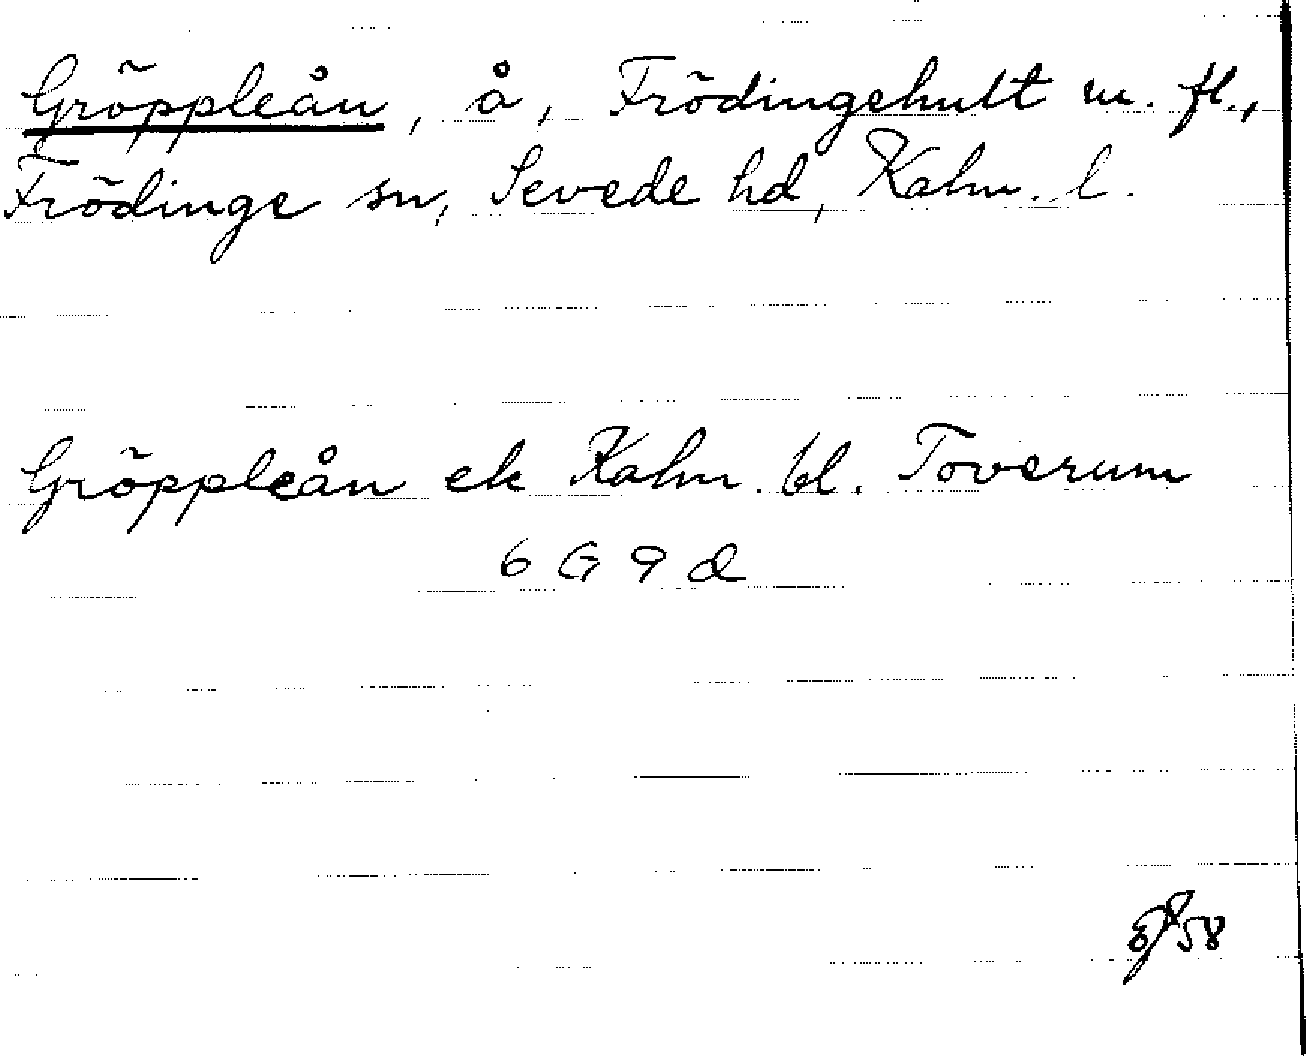 Gröppleån, å, Frödingehult m. fl.,
Frödinge sn, Sevede hd, Kalm. l.
Gröppleån ek Kalm. bl. Toverum
6 G 9 d
58